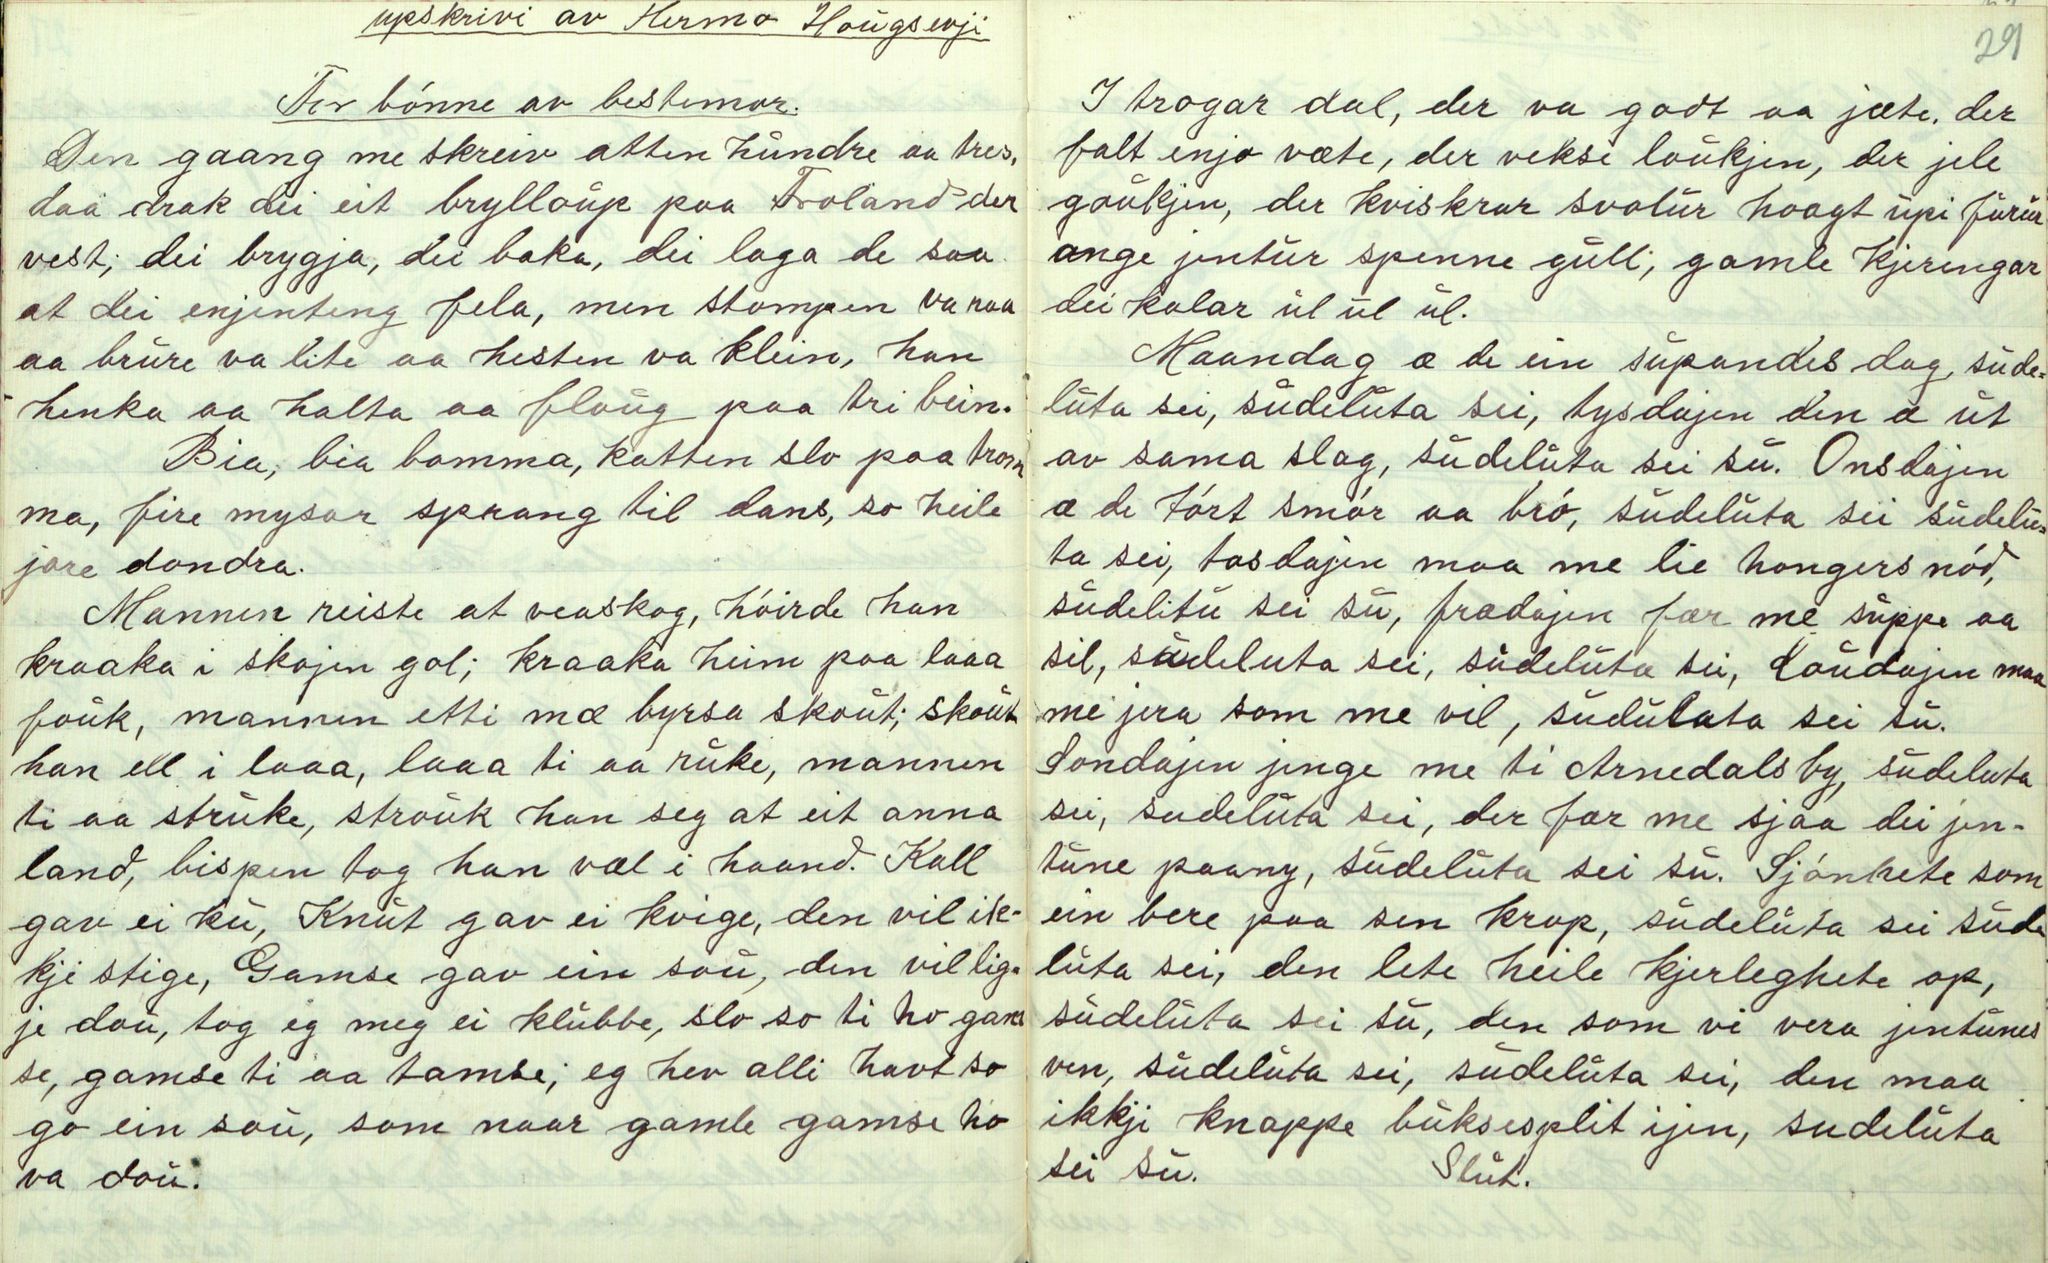 upskrivi av Hermo Hougsevji
For bónne av bestemor.
Den gaang me skreiv atten hundre aa tres,
daa drak dei eit brylloup paa Froland der
vest; dei brygja, dei baka, dei laga de saa
at dei enjenteng fela, men stompen va raa
aa brure va lite aa hesten va klein, han
henka aa halta aa floug paa tri bein.
Bia, bia bomma, katten slo paa trom
ma, fire mysar sprang til dans, so heile
jore dondra.
Mannen reiste at veaskog, hóirde han
kraaka i skojen gol; kraaka heim paa laaa
fouk, mannen etti mæ byrsa skout; skout
han ell i laaa, laaa ti aa ruke, mannen
ti aa struke, strouk han seg at eit anna
land, bispen tog han væl i haand. Kall
gav ei ku, Knut gav ei kvige, den vil ik-
kje stige, Gamse gav ein sou, den vil lig-
je dou, tog eg meg ei klubbe, slo so ti ho gam
se, gamse ti aa tamse; eg hev alli havt so
go ein sou, som naar gamle gamse ho
va dou.
29
I trogar dal, der va godt aa jæte. der
falt enjo væte, der vekse loukjen, der jele
goukjen, der kviskrar svolur hoagt upi furur
ange jentur spenne gull; gamle kjeringar
dei kalar ul ul ul.
Maandag æ de ein supandes dag, sude=
luta sei, sudeluta sei, tysdajen den æ ut
av sama slag, sudeluta sei su. Onsdajen
æ de tórt smór aa bró, sudeluta sei sudelu=
ta sei, tosdajen maa me lie hongersnód,
sudelitu sei su, frædajen fær me suppe aa
sil, sudeluta sei, sudeluta sei, Loudajen maa
me jera som me vil, sudulata sei su.
Sondajen jenge me ti Arnedals by, sudeluta
sei, sudeluta sei, der fær me sjaa dei jen-
tune paany, sudeluta sei su. Sjónhete som
ein bere paa sen krop, sudeluta sei sude
luta sei, den lete heile kjerleghete op,
sudeluta sei su, den som vi vera jentunes
ven, sudeluta sei, sudeluta sei, den maa
ikkji knappe buksesplit ijen, sudeluta
sei su. Slut.